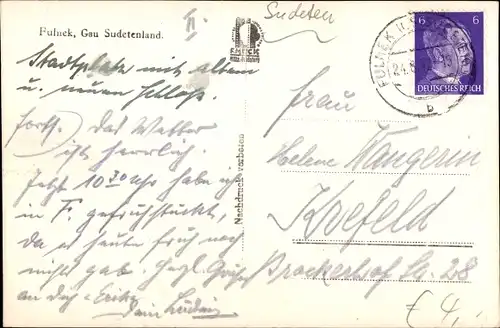 Fulnek, Gau Sudetenland.
II.
Sudeten
Stadtplatz mit altem
u. neuem Schloß.
Forts.) Das Wetter
ist herrlich.
Jetzt 10³⁰ Uhr habe ich
in F. gefrühstückt,
da es heute früh noch
nicht gab. Herzl. Grüße
an dich + Erika
Dein Ludwig
Nachdruck verboten
FULNEK
24.
b
6 6
DEUTSCHES REICH
Frau
Helene Wangerin
Krefeld
Brockerhof Str. 28
€ 4,-